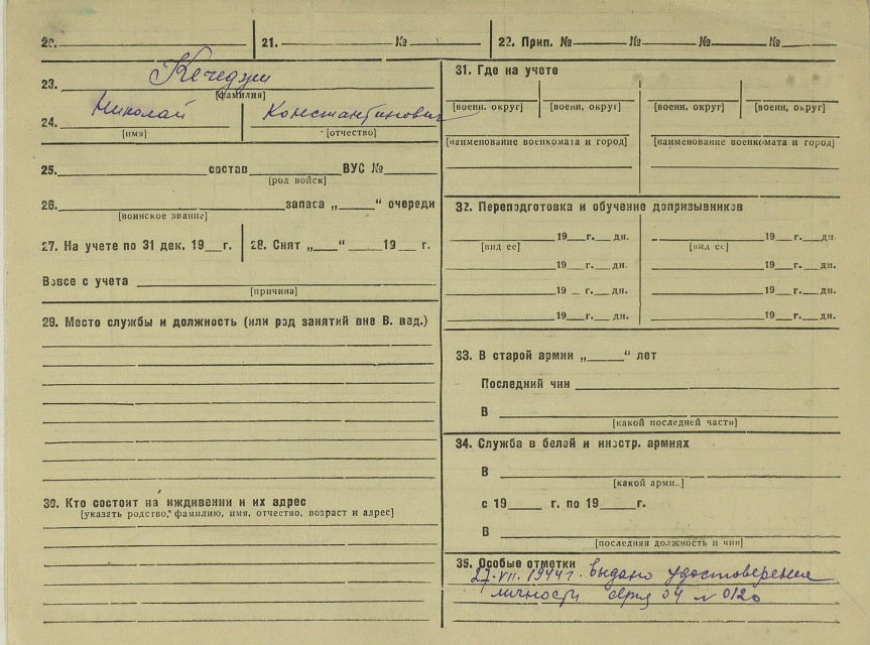 20. 21. № 22. Прип. № № № №
23. Кечедуш
[фамилия]
24. Николай Константинович
[имя] [отчество]
25. состав ВУС №
[род войск]
26. запаса „ “ очереди
[воинское звание]
27. На учете по 31 дек. 19 г. 28. Снят „ “ 19 г.
Вовсе с учета
[причина]
29. Место службы и должность (или род занятий вне В. вед.)
30. Кто состоит на иждивении и их адрес
[указать родство, фамилию, имя, отчество, возраст и адрес]
31. Где на учете
[военн. округ] [военн. округ] [военн. округ] [военн. округ]
[наименование военкомата и город] [наименование военкомата и город]
32. Переподготовка и обучение допризывников
19 г. дн. 19 г. дн.
[вид ее] [вид ее]
19 г. дн. 19 г. дн.
19 г. дн. 19 г. дн.
19 г. дн. 19 г. дн.
33. В старой армии „ “ лет
Последний чин
В
[какой последней части]
34. Служба в белой и иностр. армиях
В
[какой арми..]
с 19 г. по 19 г.
В
[последняя должность и чин]
35. Особые отметки
27.VII.1944 г. выдано удостоверение
личности серия 04 № 0120